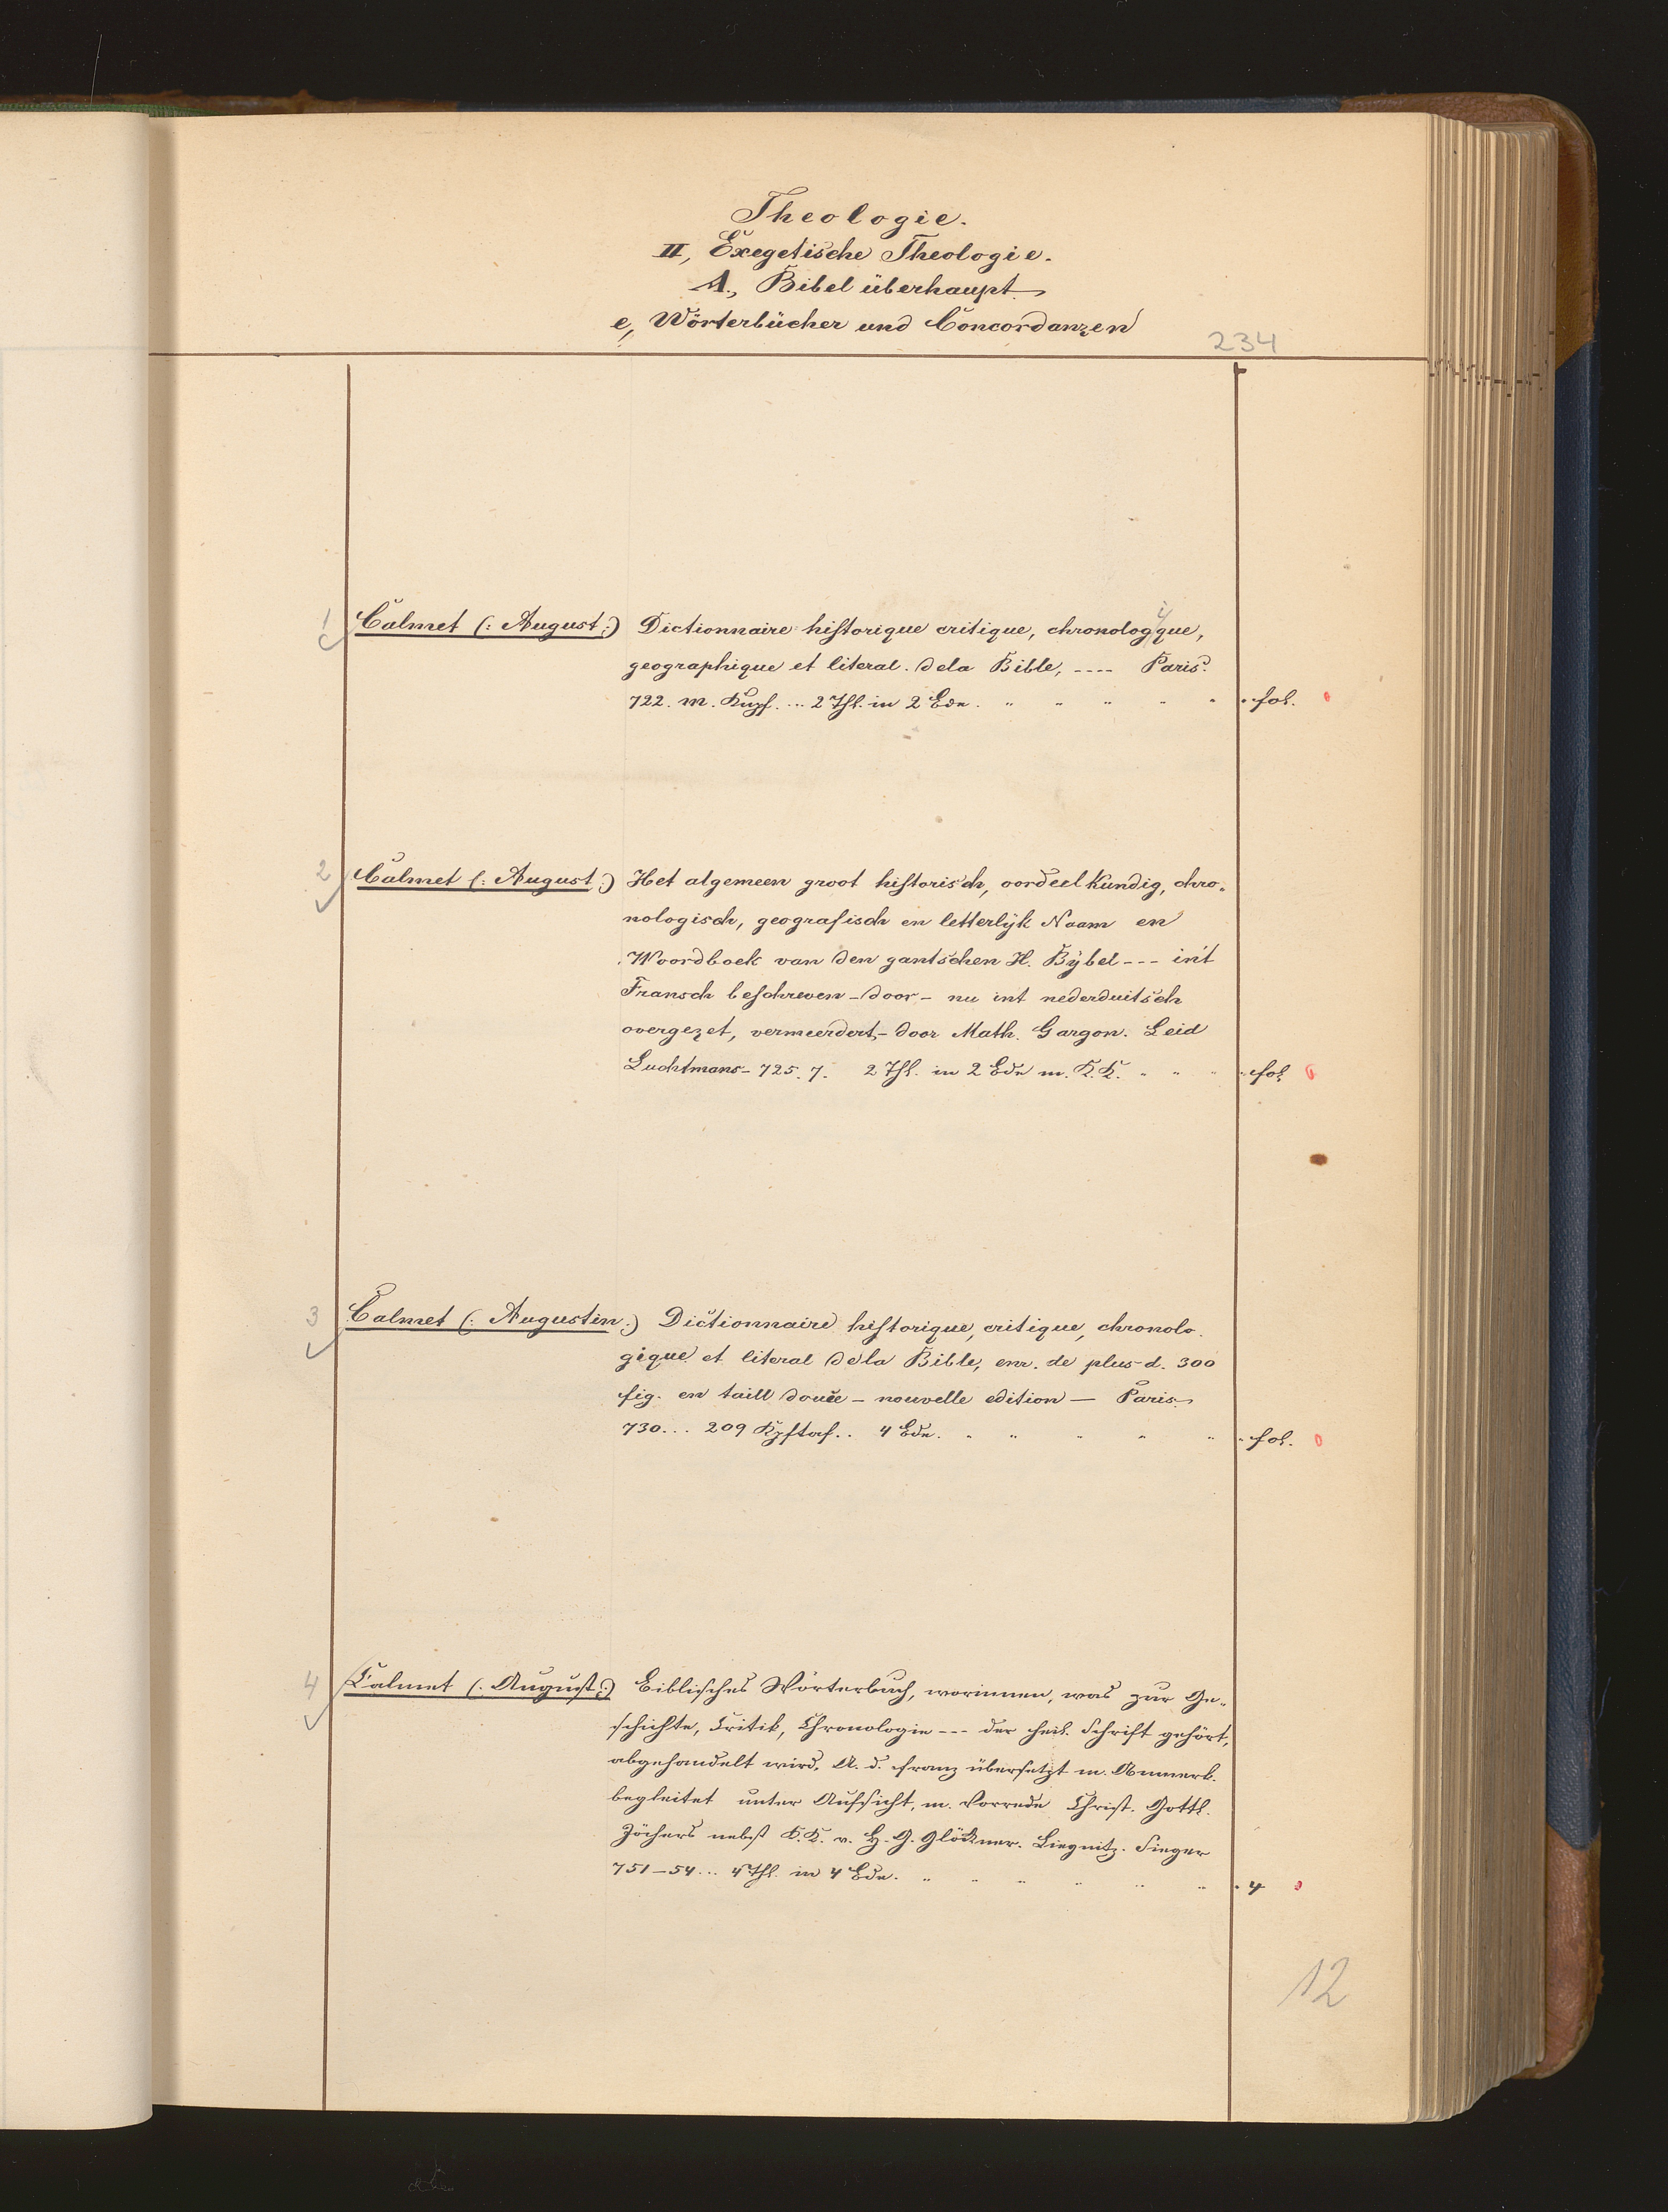 Theologie.
II, Exegetische Theologie.
A., Bibel überhaupt.
e, Wörterbücher und Concordanzen
234
1 Calmet (: August:) Dictionnaire historique critique, chronologique,
geographique et literal. dela Bible, ---- Paris.
722. m. Kupf. ... 2 Thl. in 2 Bde. " " " " " fol. 0
2 Calmet (: August:) Het algemeen groot historisch, oordeelkundig, chro-
nologisch, geografisch en letterlijk Naam en
Woordboek van den gantschen H. Bÿbel --- in't
Fransch beschreven - door - nu int nederduitsch
overgezet, vermeerdert, - door Math. Gargon. Leid
Luchtmans - 725. 7. 2 Thl. in 2 Bde m. K.K. " " " fol. 0
3 Calmet (: Augustin:) Dictionnaire historique, critique, chronolo-
gique et literal dela Bible, enr. de plus d. 300
fig. en taill douce - nouvelle edition — Paris.
730... 209 Kpftaf.. 4 Bde. " " " " " fol. 0
4 Calmet (: August:) Biblisches Wörterbuch, worinnen, was zur Ge-
schichte, Critik, Chronologie --- der heil. Schrift gehört,
abgehandelt wird. A. d. Franz übersetzt m. Anmerk.
begleitet unter Aufsicht, m. Vorrede Christ. Gottl.
Jöchers nebst K.K. v. H. G. Glöckner. Liegnitz. Sieger
751-54... 4 Thl. in 4 Bde. " " " " " " 4 0
12